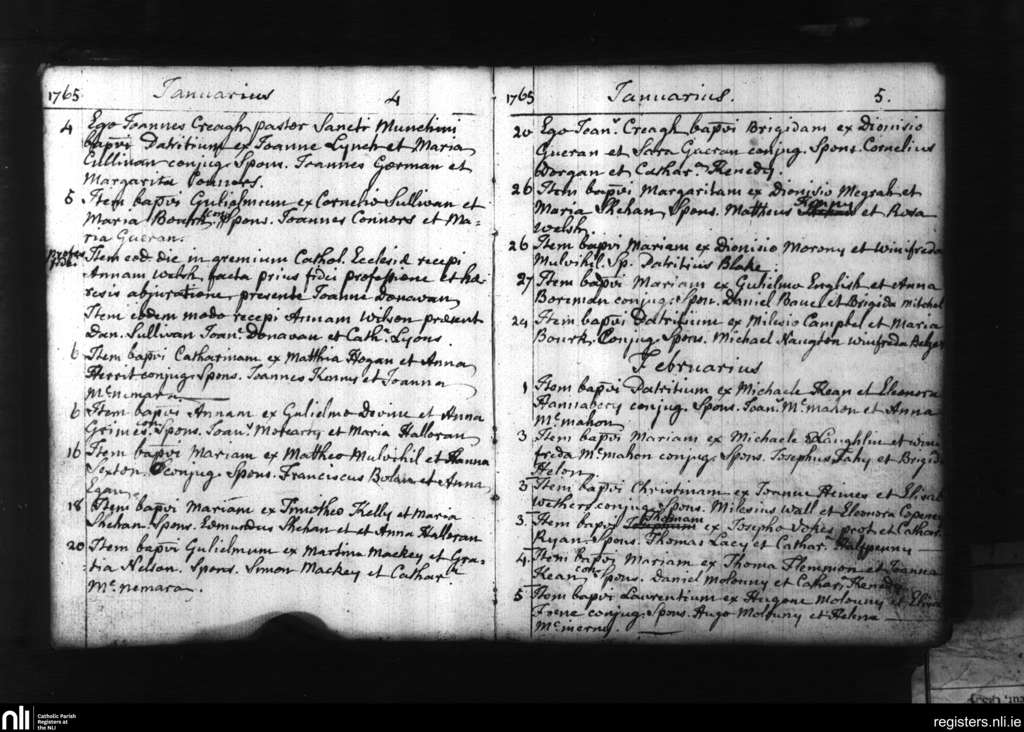 1765 Januarius 4
4 Ego Joannes Creagh pastor Sancti Munchini
bapvi Patritium ex Joanne Lynch et Maria
Cullinan conjug. Spons. Joannes Gorman et
Margarita Connors.
5 Item bapvi Gulielmum ex Cornelio Sullivan et
Maria Bourk con. Spons. Joannes Connors et Ma-
ria Gueran.
Item eod. die in gremium Cathol. Ecclesiæ recepi
Annam Welsh, facta prius fidei professione et hæ-
resis abjuratione, presente Joanne Donavan
Item eodem modo recepi Annam Wilson present
Dan. Sullivan Joan. Donavan et Cath. Lyons.
6 Item bapvi Catharinam ex Matthia Hogan et Anna
conjug. Spons. Joannes et Joanna
Mc nemara
6 Item bapvi Annam ex Gulielmo et Anna
Grimes con. Spons. Joan. Moriarty et Maria Halloran
16 Item bapvi Mariam ex Mattheo Mulvihil et Hanna
Sexton conjug. Spons. Franciscus Bolan et Anna
Egan
18 Item bapvi Mariam ex Timotheo Kelly et Maria
Shehan. Spons. Edmundus Shehan et et Anna Halloran
20 Item bapvi Gulielmum ex Martino Mackey et Gra-
tia Nelson. Spons. Simon Mackey et Cathar.
Mc nemara.
1765 Januarius. 5.
20 Ego Joan. Creagh bapvi Brigidam ex Dionisio
Gueran et Sara Gueran conjug. Spons. Cornelius
Dorgan et Cathar. Kenedy.
26 Item bapvi Margaritam ex Dionisio Megrah et
Maria Shehan, Spons. Mattheus et Rosa
Welsh
26 Item bapvi Mariam ex Dionisio Morony et Winifreda
Mulvihil Sp. Patritius Blake
27 Item bapvi Mariam ex Gulielmo English et Anna
Boreman conjug. Spon. Daniel et Brigida Mitchel
24 Item bapvi Patritium ex Milesio Campbel et Maria
Bourk. Conjug. Spons. Michael Naugton Winifreda
Februarius
1 Item bapvi Patritium ex Michaele Kean et Eleonora
conjug. Spons. Joan. Mc mahon et Anna
Mc mahon
3 Item bapvi Mariam ex Michaele Laughlin et wini
freda Mc mahon conjug. Spons. Josephus Fahy et Brigida
3 Item bapvi Christinam ex Joanne et Elisab
conjug. Spons. Milesius Wall et Eleonora
3. Item bapvi Thomam ex Josepho prot. et Cathar.
Ryan. Spons. Thomas Lacy et Cathar. Halpenny
4. Item bapvi Mariam ex Thoma Flemmon et Joanna
Kean con. Spons. Daniel Molouny et Cathar. Kenedy
5 Item bapvi Laurentium ex Hugone Molouny et
conjug. Spons. Hugo Molouny et Helena
Mc inerny.
nli Catholic Parish
Registers at
the NLI
registers.nli.ie